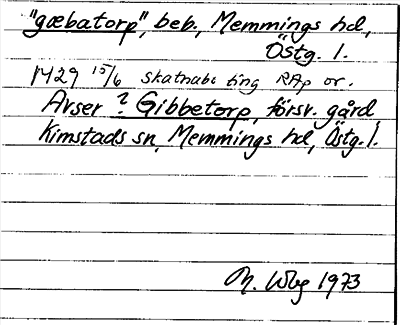 "gæbatorp", beb., Memmings hd,
Östg. l.
1429 15/6 skatnabi ting RAp or.
Avser ? Gibbetorp, försv. gård,
Kimstads sn, Memmings hd, Östg. l.
M. Wbg 1973